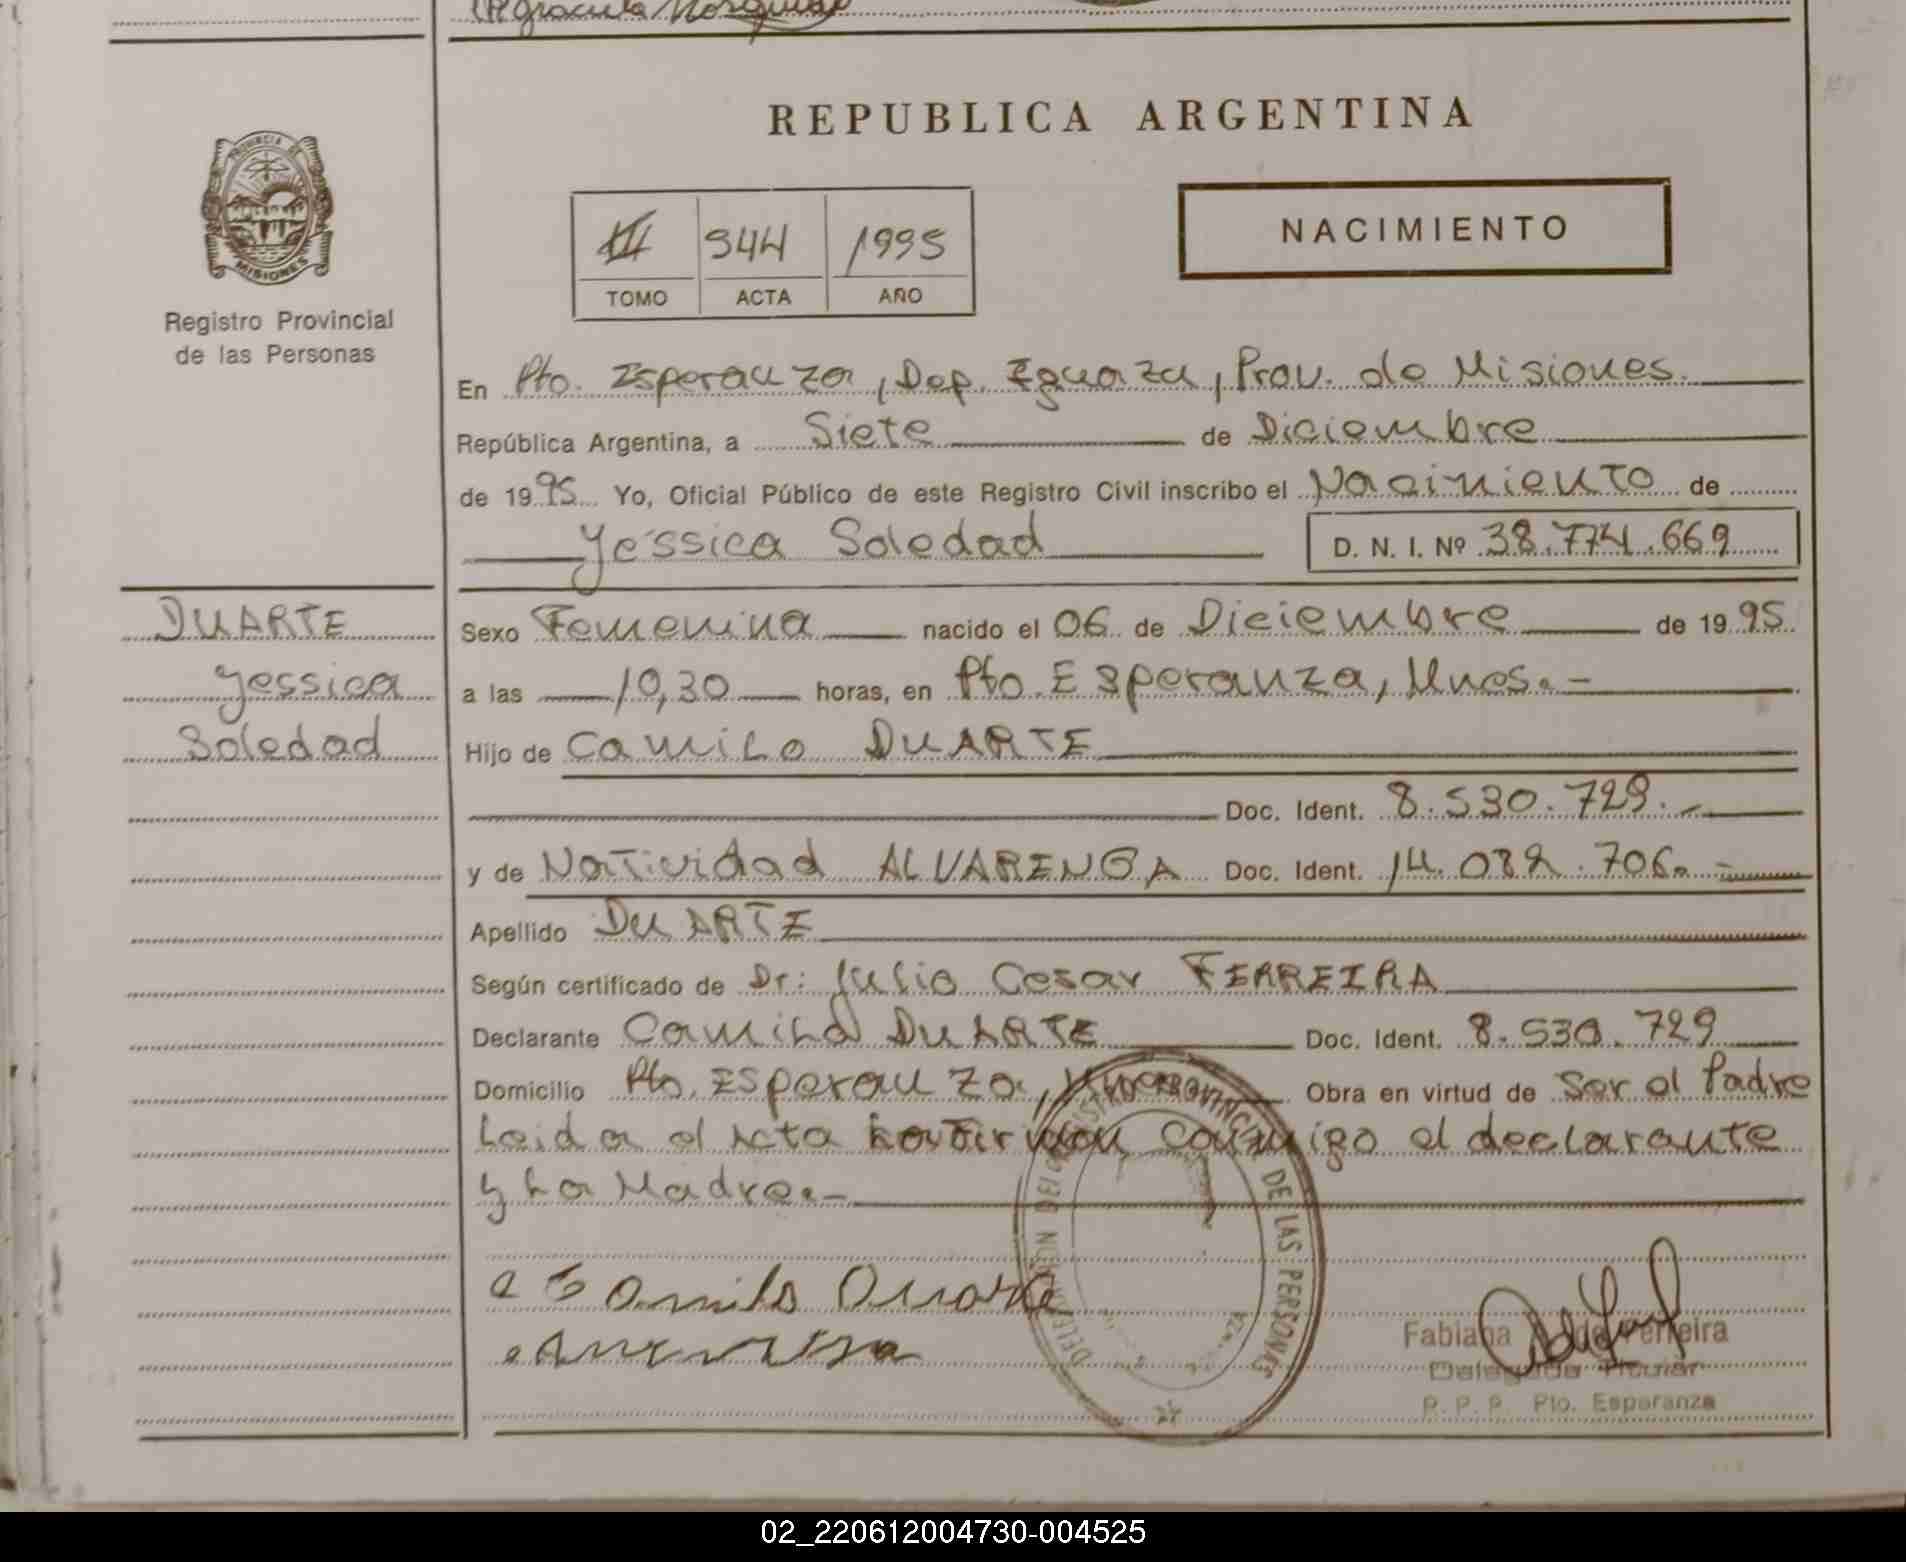 REPUBLICA ARGENTINA
PROVINCIA DE
MISIONES
Registro Provincial
de las Personas
944 1995
TOMO ACTA AÑO
NACIMIENTO
En Pto. Esperanza, Dep. Iguazu, Prov. de Misiones.
República Argentina, a Siete de Diciembre
de 1995 Yo, Oficial Público de este Registro Civil inscribo el Nacimiento de
Yessica Soledad
D. N. I. Nº 38.774.669
DUARTE
Yessica
Soledad
Sexo Femenina nacido el 06 de Diciembre de 1995
a las 10,30 horas, en Pto. Esperanza, Mnes.-
Hijo de Camilo DUARTE
Doc. Ident. 8.530.729.-
y de Natividad ALVARENGA Doc. Ident. 14.082.706.-
Apellido DUARTE
Según certificado de Dr: Julio Cesar FERREIRA
Declarante Camilo DUARTE Doc. Ident. 8.530.729
Domicilio Pto. Esperanza, Obra en virtud de Ser el Padre
Leida el Acta conmigo el declarante
y La Madre.-
Camilo Duarte
DE LAS PERSONAS
Fabiana Ferreira
Delegada Titular
R. P. P. Pto. Esperanza
02_220612004730-004525